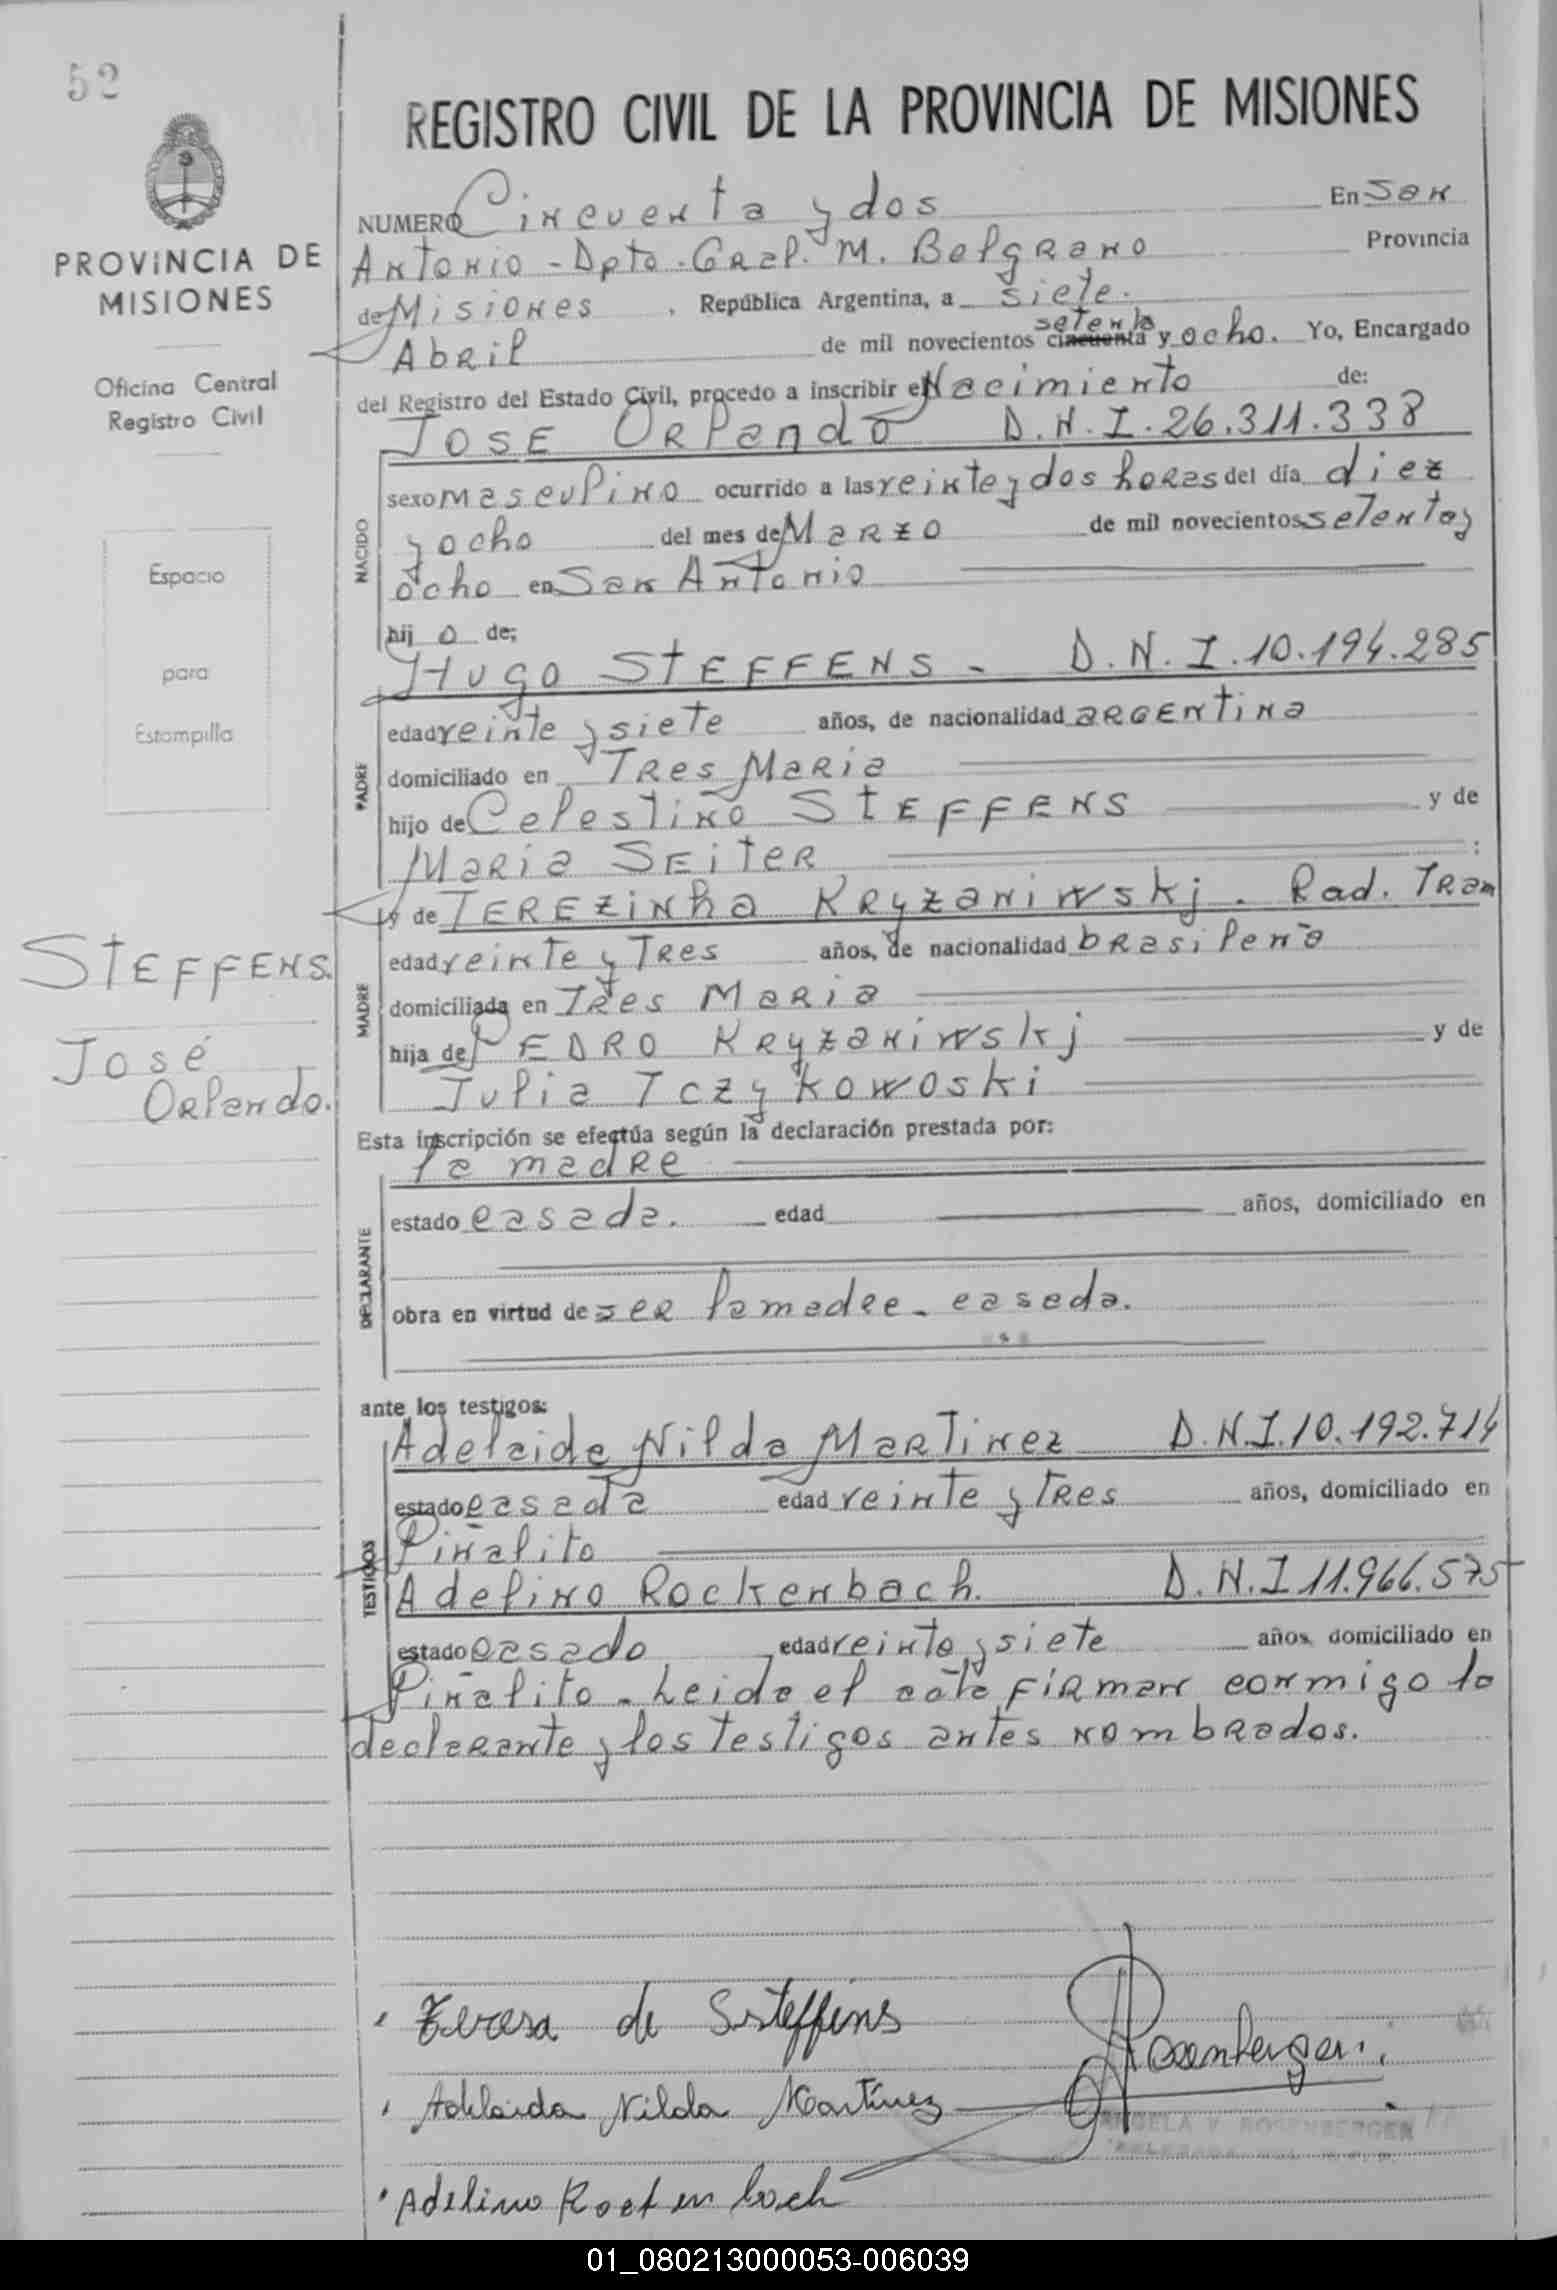 52
REGISTRO CIVIL DE LA PROVINCIA DE MISIONES
PROVINCIA DE
MISIONES
Oficina Central
Registro Civil
Espacio
para
Estampilla
STEFFENS.
José
Orlando.
NUMERO Cincuenta y dos En San
Antonio - Dpto. Gral. M. Belgrano Provincia
de Misiones , República Argentina, a siete.
setenta
Abril de mil novecientos cincuenta y ocho. Yo, Encargado
del Registro del Estado Civil, procedo a inscribir el Nacimiento de:
JOSE Orlando D.N.I. 26.311.338
NACIDO
sexo masculino ocurrido a las veinte y dos horas del día diez
y ocho del mes de Marzo de mil novecientos setenta y
ocho en San Antonio
hij o de;
Hugo STEFFENS - D.N.I. 10.194.285
PADRE
edad veinte y siete años, de nacionalidad argentina
domiciliado en Tres Maria
hijo de Celestino STEFFENS y de
Maria SEITER :
y de TEREZinha Kryzaniwskj. Rad. Tram
MADRE
edad veinte y Tres años, de nacionalidad brasileña
domiciliada en Tres Maria
hija de PEDRO Kryzaniwskj y de
Julia Tczykowoski
Esta inscripción se efectúa según la declaración prestada por:
la madre
DECLARANTE
estado casada. edad años, domiciliado en
obra en virtud de ser la madre - casada.
ante los testigos:
TESTIGOS
Adelaida Nilda Martinez D.N.I. 10.192.714
estado casada edad veinte y Tres años, domiciliado en
Piñalito
Adelino Rockenbach. D.N.I 11.966.575
estado casado edad veinte y siete años, domiciliado en
Piñalito - Leida el acta firman conmigo la
declarante y los testigos antes nombrados.
Teresa de Ssteffens
Rosenberger
Adelaida Nilda Martínez
ANGELA V. ROSENBERGER
Adelino Rockenbach
01_080213000053-006039